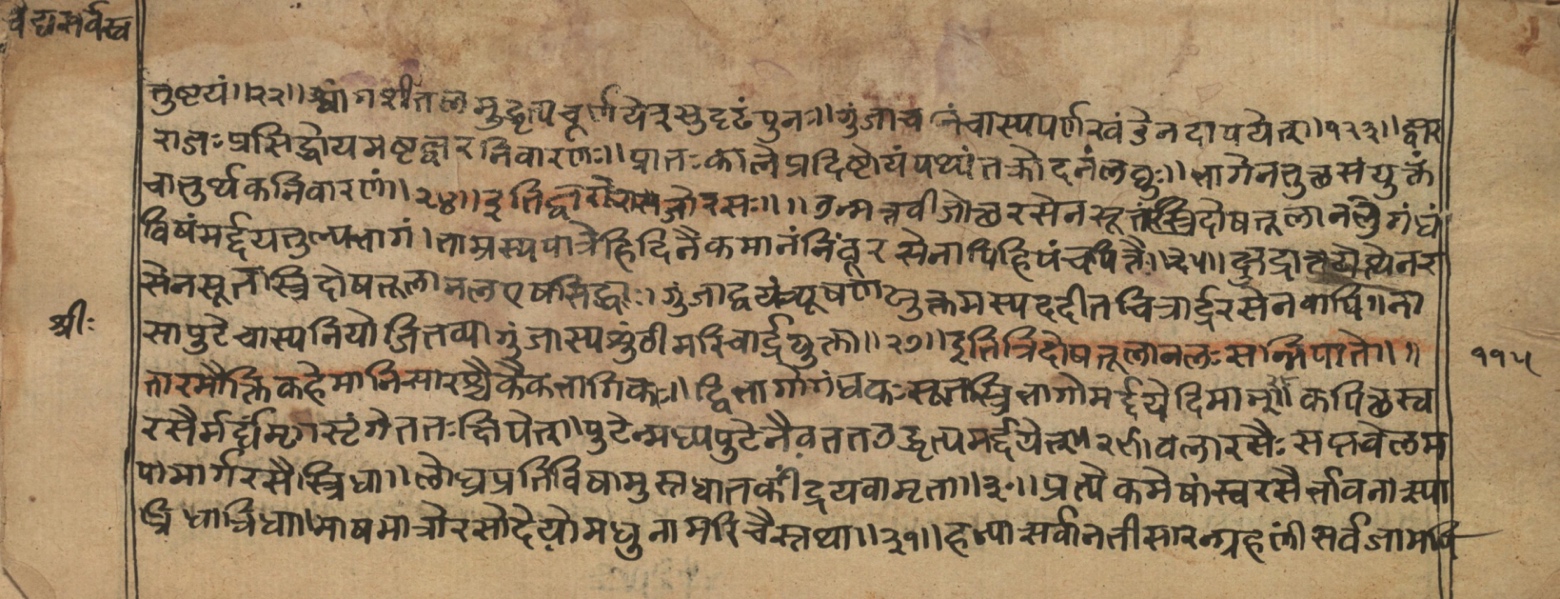 वैद्यसर्वस्व
तुष्टयं॥२२॥स्वांगशीतलमुद्धृत्यचूर्णयेत्सुदृढंपुनः॥गुंजाच नंचास्यपर्णखंडेनदापयेत्॥१२३॥ज्वार
राजः प्रसिद्धोयमष्टज्वरनिवारणः॥प्रातःकालेप्रदिष्टोयंपथ्यंतक्रोदनंलघुः॥भागेनतुछसंयुक्तं
चातुर्थकनिवारणं॥२४॥इतिज्वर रसः॥॥उन्मत्तवीजोछरसेनसूतंत्रिदोषतूलानलगंधं
द्विषंमर्द्दयतुल्यभागं।ताम्रस्यपात्रेहिदिनैकमानंनिंबूरसेनापिहिपंचपित्तैः॥२५॥क्षुद्रा
सेनसूतस्त्रिदोषतूलानलएषसिद्धः।गुंजाद्वयंत्र्यूषणयुक्तमस्यददीतचित्रार्द्ररसेनवापि॥ना
सापुटेचास्यनियोजितव्यागुंजास्यशुंठीमरिचार्द्रयुक्ता॥२७॥इतित्रिदोषतूलानलःसन्निपाते॥॥
श्रीः
तारमौक्तिकहेमानिसारश्चैकैकभागिकः॥द्विभागोगंधकःसूतस्त्रिभागोमर्द्दयेदिमान्॥कपिछस्व
रसैर्मर्द्दं ततःक्षिपेत्॥पुटेन्मध्यपुटेनैवततउद्धृत्यमर्द्दयेत्॥२९॥वलारसैःसप्तवेलम
पामार्गरसैस्त्रिधा॥लोध्रप्रतिविषामुस्तधातकींद्रयवामृता॥३०॥प्रत्येकमेषांस्वरसैर्भावनास्या
त्रिधात्रिधा॥माषमात्रोरसोदेयोमधुनामरिचैस्तथा॥३१॥हन्यासर्वानतीसारन्ग्रहणींसर्वजामपि
११५